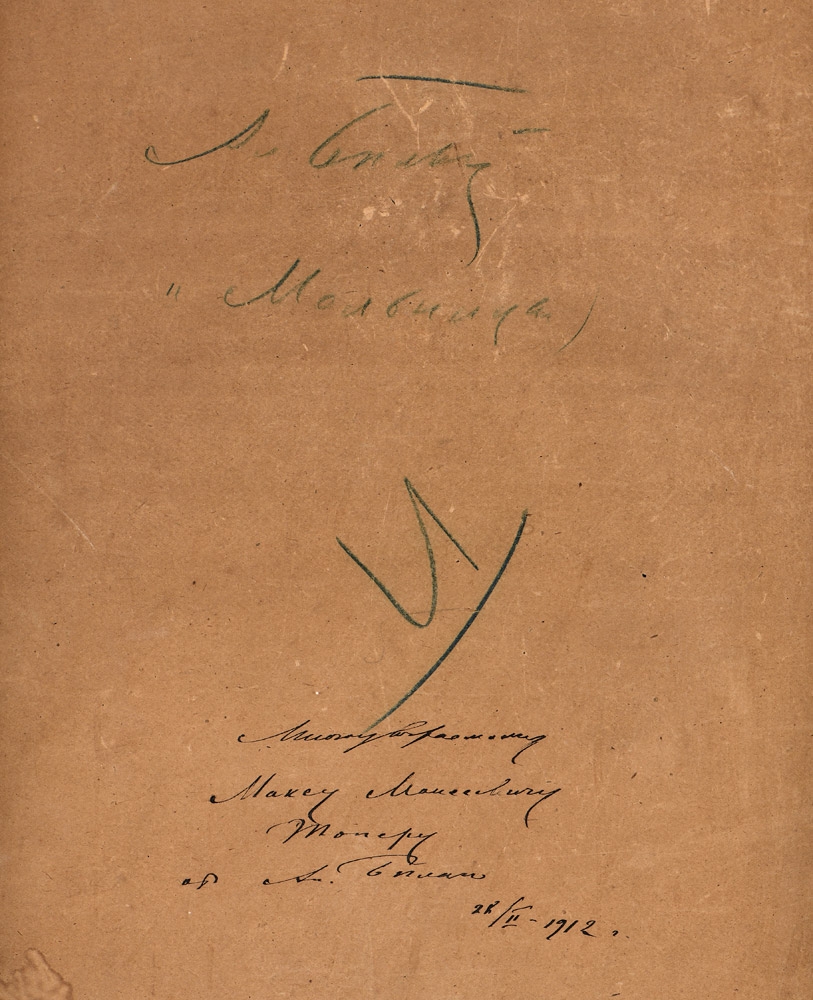 Ал. Бѣлый
„Мальвина)
Многоуважаемому
Максу Моисеевичу
Топеру
от Ал. Бѣлаго
28/II - 1912 г.